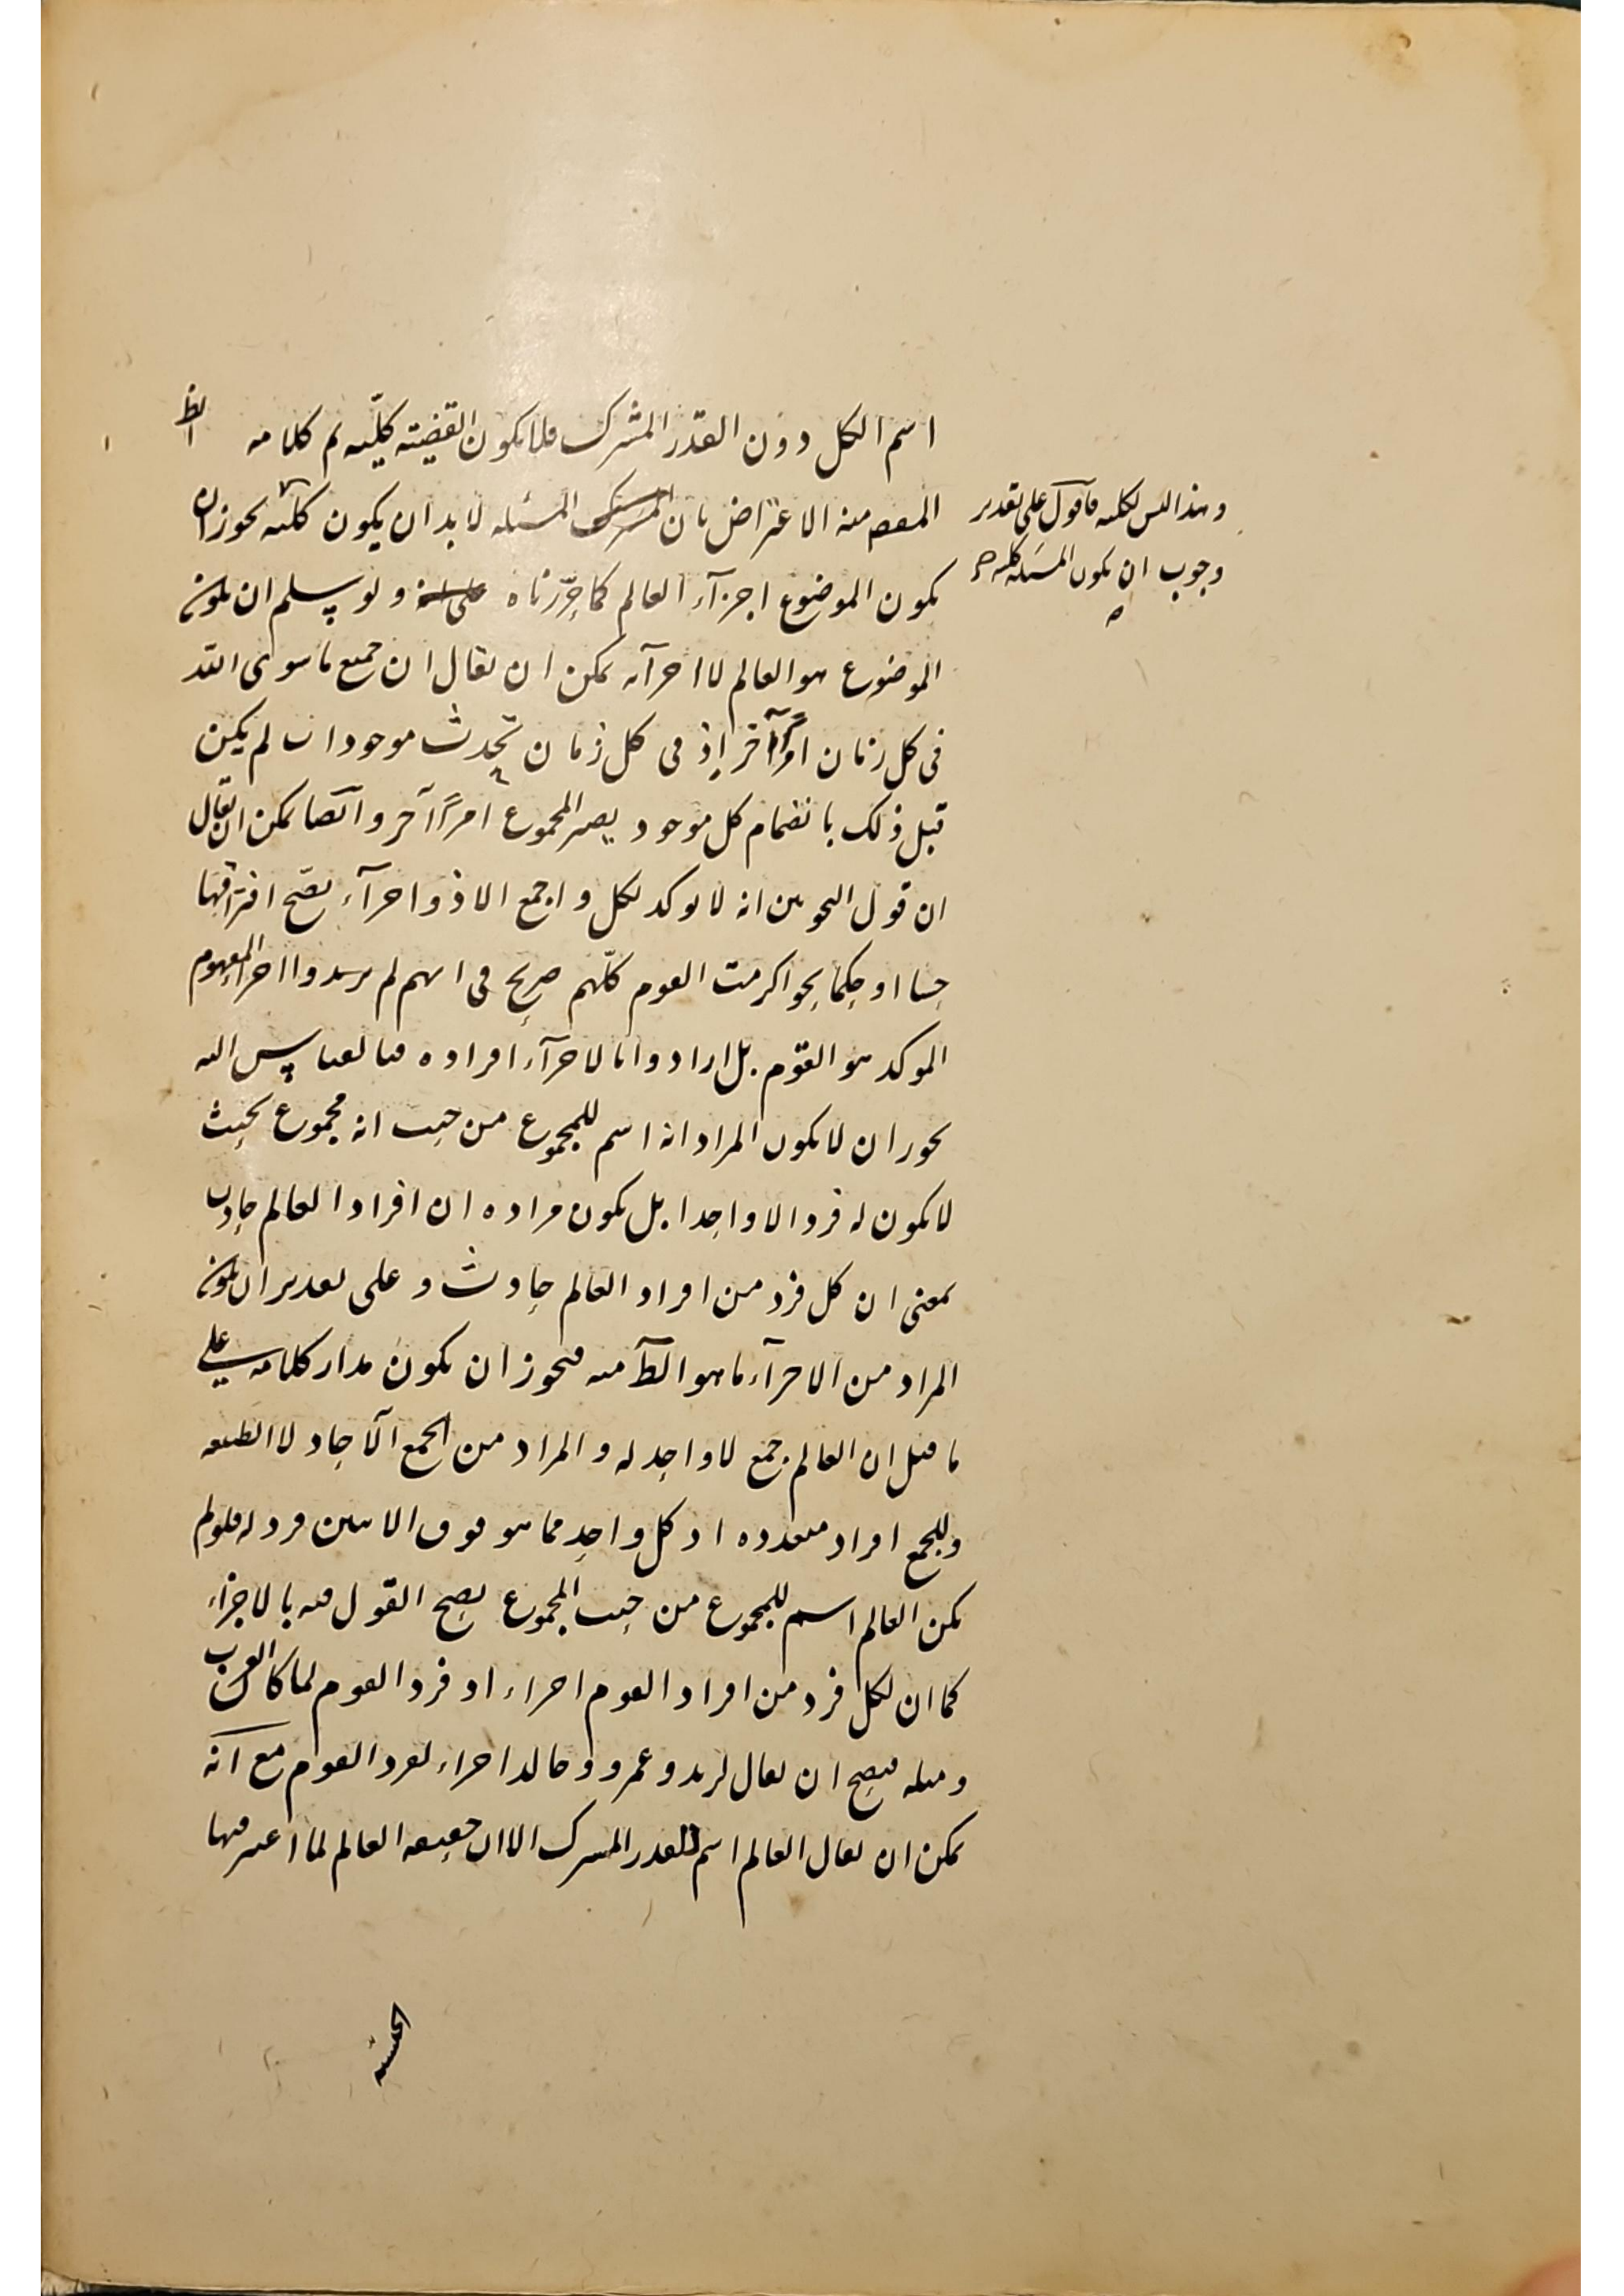 اسم الكل دون القدر المشترك فلا يكون القضية كلّية ثم كلامه الظ
المقصود منه الاعتراض بان المسئله لا بد ان يكون كلية يجوز ان
يكون الموضوع اجزآء العالم كما حرّرناه ولو سلم ان يكون
الموضوع هو العالم لا اجزآئه يمكن ان يقال ان جميع ما سوى الله
فى كل زمان امرًا آخر إذ فى كل زمان تحدث موجودات لم يكن
قبل ذلك بانضمام كل موجود يصير المجموع امرًا آخر وايضا يمكن ان يقال
ان قول النحويين انه لا يوكد لكل واجمع الا ذو اجزآء يصّح افتراقها
حسا او حكما نحو اكرمت القوم كلّهم صريح فى انهم لم يريدوا اجزاء المفهوم
الموكد هو القوم بل ارادوا بالاجزآء افراده فبالقياس اليه
يجوز ان لا يكون المراد انه اسم للمجموع من حيث انه مجموع بحيث
لا يكون له فرد الا واحدا بل يكون مراده ان افراد العالم حادث
بمعنى ان كل فرد من افراد العالم حادث وعلى تقدير ان يكون
المراد من الاجزآء ما هو الظ منه فيجوز ان يكون مدار كلامه على
ما قيل ان العالم جمع لا واحد له والمراد من الجمع الآحاد لا الطبيعه
وللجمع افراد متعدده اذ كل واحد مما هو فوق الاثنين فرد له فلو لم
يكن العالم اسم للمجموع من حيث المجموع يصح القول فيه بالاجزاء
كما ان لكل فرد من افراد القوم اجزاء اذ فرد القوم لما كان العرب
ومثله فيصح ان يقال لزيد وعمرو وخالد اجزاء لفرد القوم مع انّه
يمكن ان يقال العالم اسم للقدر المشترك الا ان حقيقه العالم لما اعتبر فيها
وهذا ليس لكليه فاقول على تقدير
وجوب ان يكون المسئله كليه